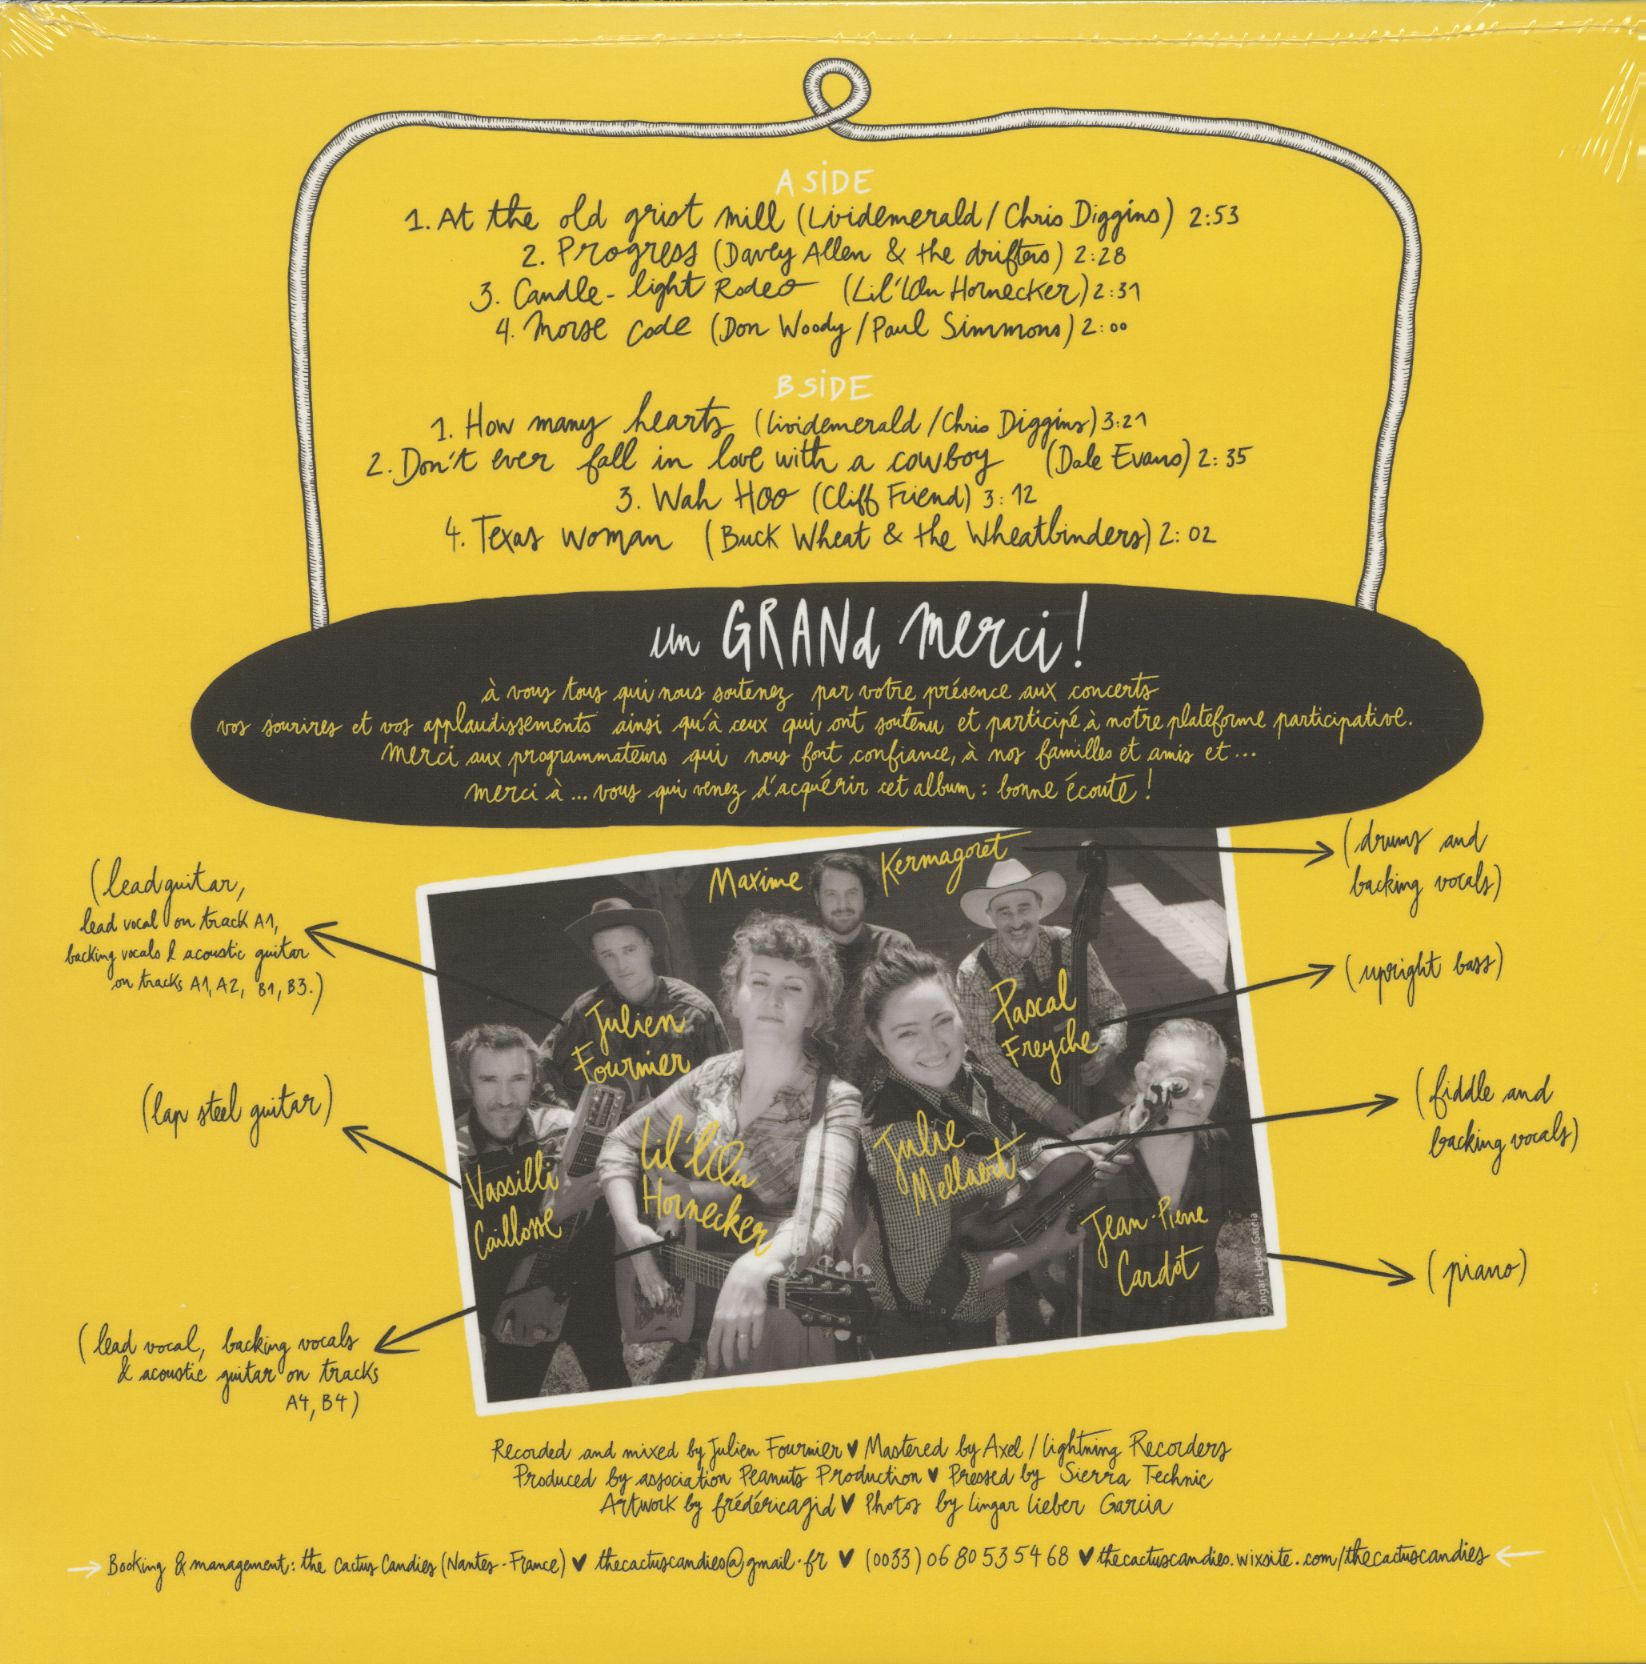 A SiDE
1. At the old grist mill (Lividemerald / Chris Diggins) 2:53
2. Progress (Davey Allen & the drifters) 2:28
3. Candle-light Rodeo (Lil'lOu Hornecker) 2:31
4. Morse code (Don Woody / Paul Simmons) 2:00
B SiDE
1. How many hearts (Lividemerald / Chris Diggins) 3:21
2. Don't ever fall in love with a cowboy (Dale Evans) 2:35
3. Wah HOO (Cliff Friend) 3:12
4. Texas woman (Buck Wheat & the Wheatbinders) 2:02
un GRANd merci !
à vous tous qui nous soutenez par votre présence aux concerts
vos sourires et vos applaudissements ainsi qu'à ceux qui ont soutenu et participé à notre plateforme participative.
merci aux programmateurs qui nous font confiance, à nos familles et amis et...
merci à ... vous qui venez d'acquérir cet album : bonne écoute !
Maxime Kermagoret
(drums and
backing vocals)
(lead guitar,
lead vocal on track A1,
backing vocals & acoustic guitar
on tracks A1, A2, B1, B3.)
Julien
Fournier
Pascal
Freyche
(upright bass)
(lap steel guitar)
Vassilli
Caillosse
Lil'lOu
Hornecker
Julie
Mellaert
(fiddle and
backing vocals)
Jean-Pierre
Cardot
(piano)
© Ingar Lieber Garcia
(lead vocal, backing vocals
& acoustic guitar on tracks
A4, B4)
Recorded and mixed by Julien Fournier ♥ Mastered by Axel / Lightning Recorders
Produced by association Peanuts Production ♥ Pressed by Sierra Technic
Artwork by frédéricagid ♥ Photos by Lingar Lieber Garcia
→ Booking & management: the Cactus Candies (Nantes - France) ♥ thecactuscandies@gmail.fr ♥ (0033) 06 80 53 54 68 ♥ thecactuscandies.wixsite.com/thecactuscandies ←